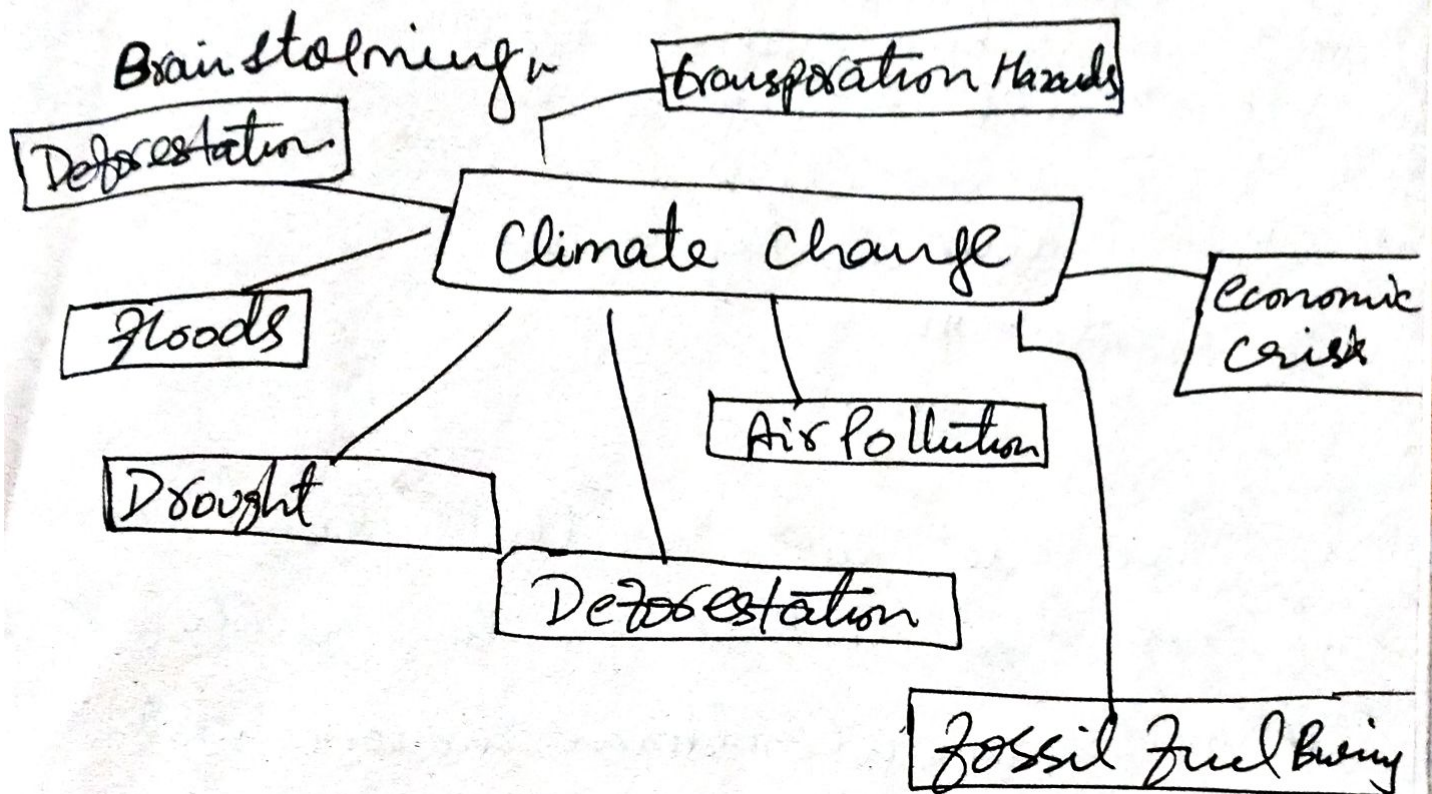 Brainstorming
transporation Hazards
Deforestation
Climate Change
economic
crisis
Floods
Air Pollution
Drought
Deforestation
Fossil Fuel Buring